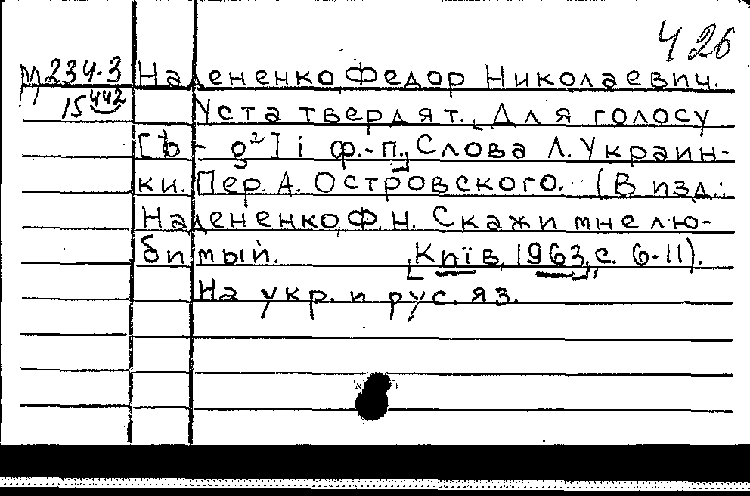 426
М 234-3 Надененко, Федор Николаевич.
15 442 Уста твердят. Для голосу
[b - g²] і ф.-п., Слова Л. Украин-
ки. Пер. А. Островского. (В изд.:
Надененко, Ф. Н. Скажи мне лю-
бимый. [Київ, 1963], с. 6-11).
На укр. и рус. яз.